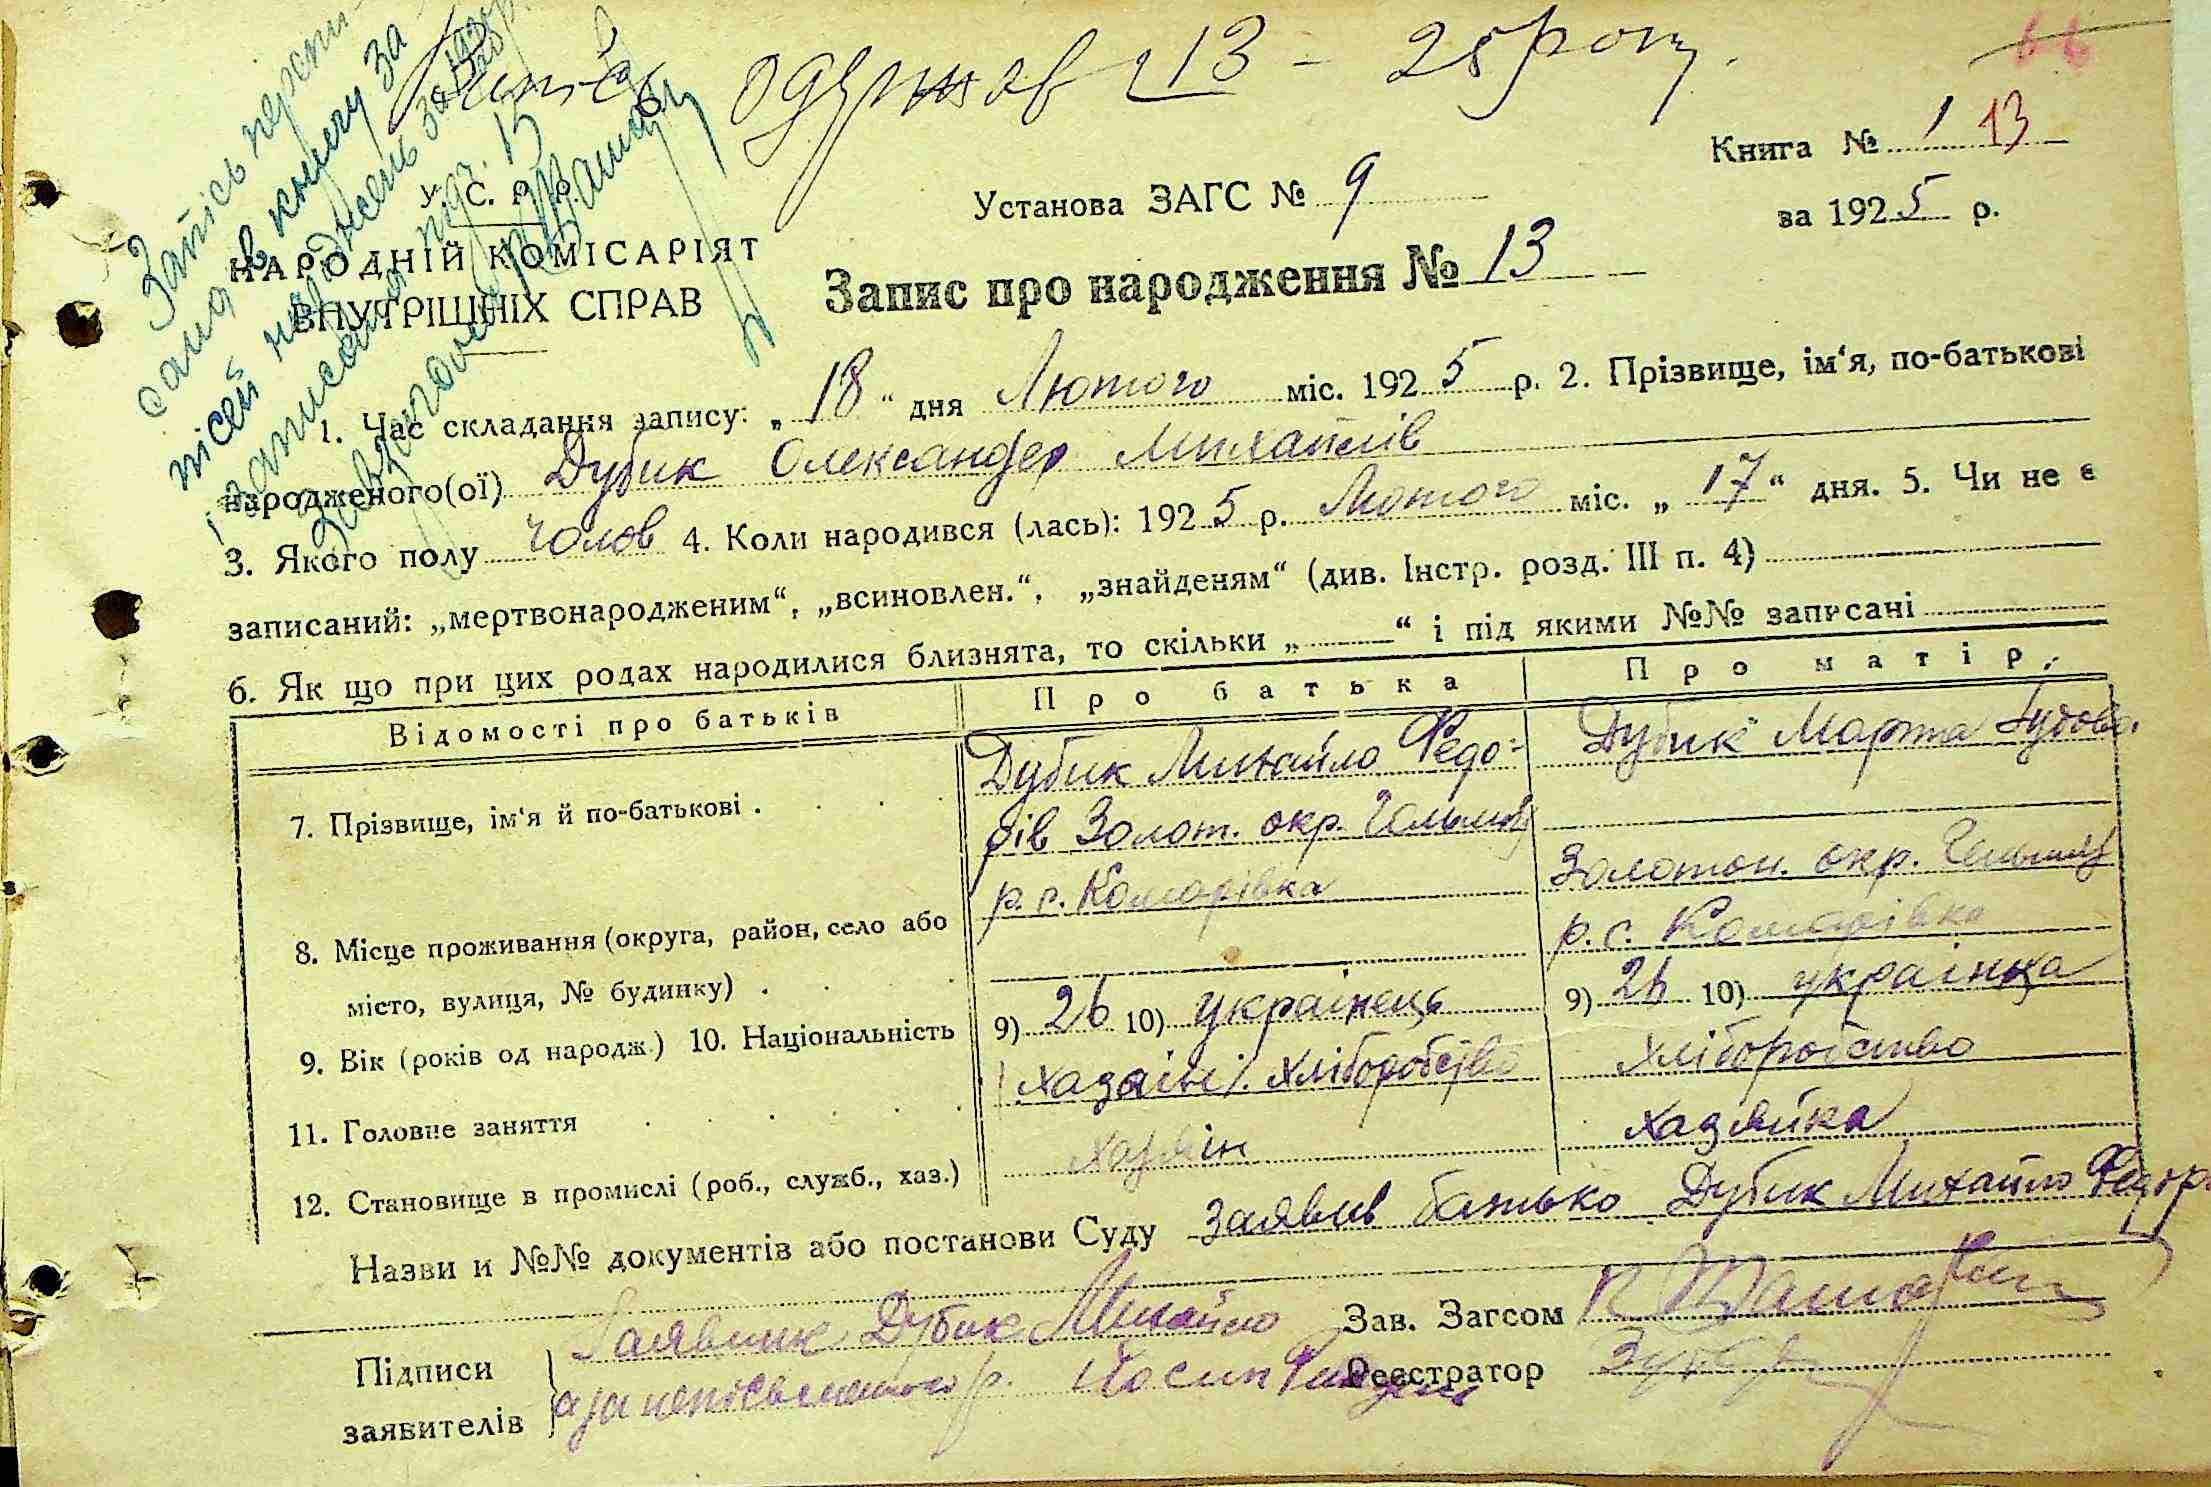 Запись одружов 13 – 25 року.
Запісь перепи-
сана в книгу за
У. С. Р. Р.
НАРОДНІЙ КОМІСАРІЯТ
ВНУТРІШНІХ СПРАВ
Установа ЗАГС № 9
Книга № 1 13
за 1925 р.
Запис про народження № 13
1. Час складання запису: „18“ дня Лютого міс. 1925 р. 2. Прізвище, ім‘я, по-батькові
народженого(ої) Дубик Олександер Михайлів
3. Якого полу чолов 4. Коли народився (лась): 1925 р. Лютого міс. „17“ дня. 5. Чи не є
записаний: „мертвонародженим“, „всиновлен.“, „знайденям“ (див. Інстр. розд. III п. 4)
6. Як що при цих родах народилися близнята, то скільки „ “ і під якими №№ записані
Відомості про батьків Про батька Про матір
7. Прізвище, ім‘я й по-батькові . Дубик Михайло Федо- Дубик Марта
рів Золот. окр. Гельмяз
р. с. Комарівка Золотон. окр. Гельмяз
8. Місце проживання (округа, район, село або р. с. Комарівка
місто, вулиця, № будинку) .
9. Вік (років од народж.) 10. Національність 9) 26 10) українець 9) 26 10) українка
11. Головне заняття хазаїн хліборобство хліборобство
12. Становище в промислі (роб., служб., хаз.) хазяїн хазяйка
Назви и №№ документів або постанови Суду Заявив батько Дубик Михайло Федор
Підписи
заявителів
Заявник Дубик Михайло
Зав. Загсом
Реєстратор